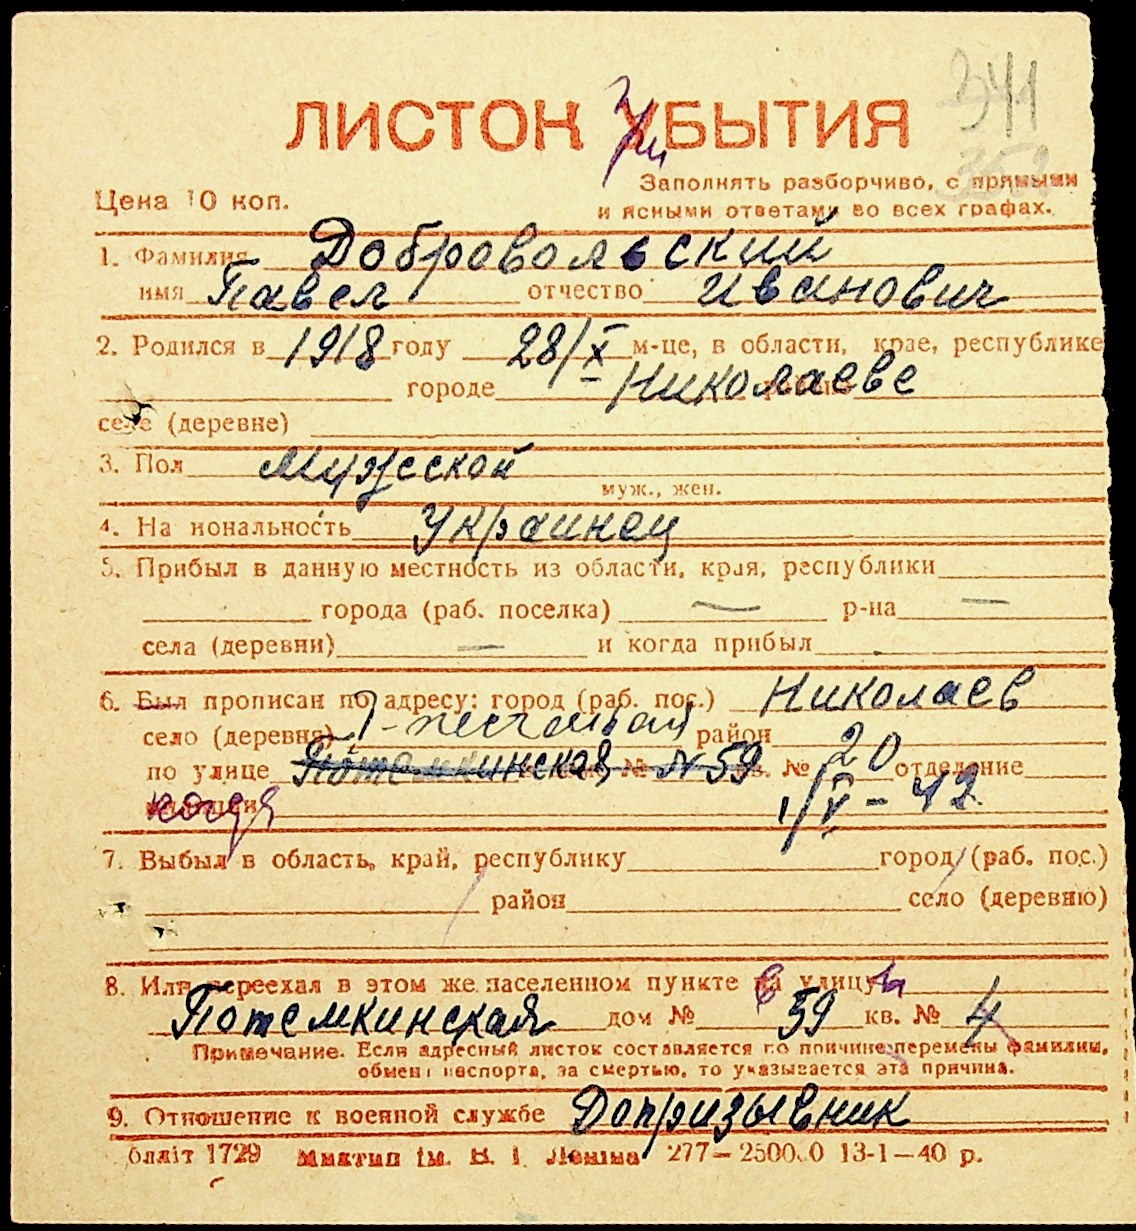 341
353
ЛИСТОК УБЫТИЯ
При
Цена 10 коп.
Заполнять разборчиво, с прямыми
и ясными ответами во всех графах.
1. Фамилия Добровольский
имя Павел отчество Иванович
2. Родился в 1918 году 28/X м-це, в области, крае, республике
городе Николаеве
селе (деревне)
3. Пол Мужской
муж., жен.
4. На иональность Украинец
5. Прибыл в данную местность из области, края, республики
города (раб. поселка) — р-на —
села (деревни) — и когда прибыл
6. Был прописан по адресу: город (раб. пос.) Николаев
село (деревня) 7-песчаная район
по улице Потемкинская № N 59 кв. № 20 отделение
когда 1/V-42
7. Выбыл в область, край, республику город (раб. пос.)
район село (деревню)
8. Или переехал в этом же населенном пункте в улицы
Потемкинская дом № 59 кв. № 4
Примечание. Если адресный листок составляется по причине перемены фамилии,
обмена паспорта, за смертью, то указывается эта причина.
9. Отношение к военной службе Допризывник
бліт 1729 Миктип ім. В. І. Леніна 277—250000 13-1—40 р.